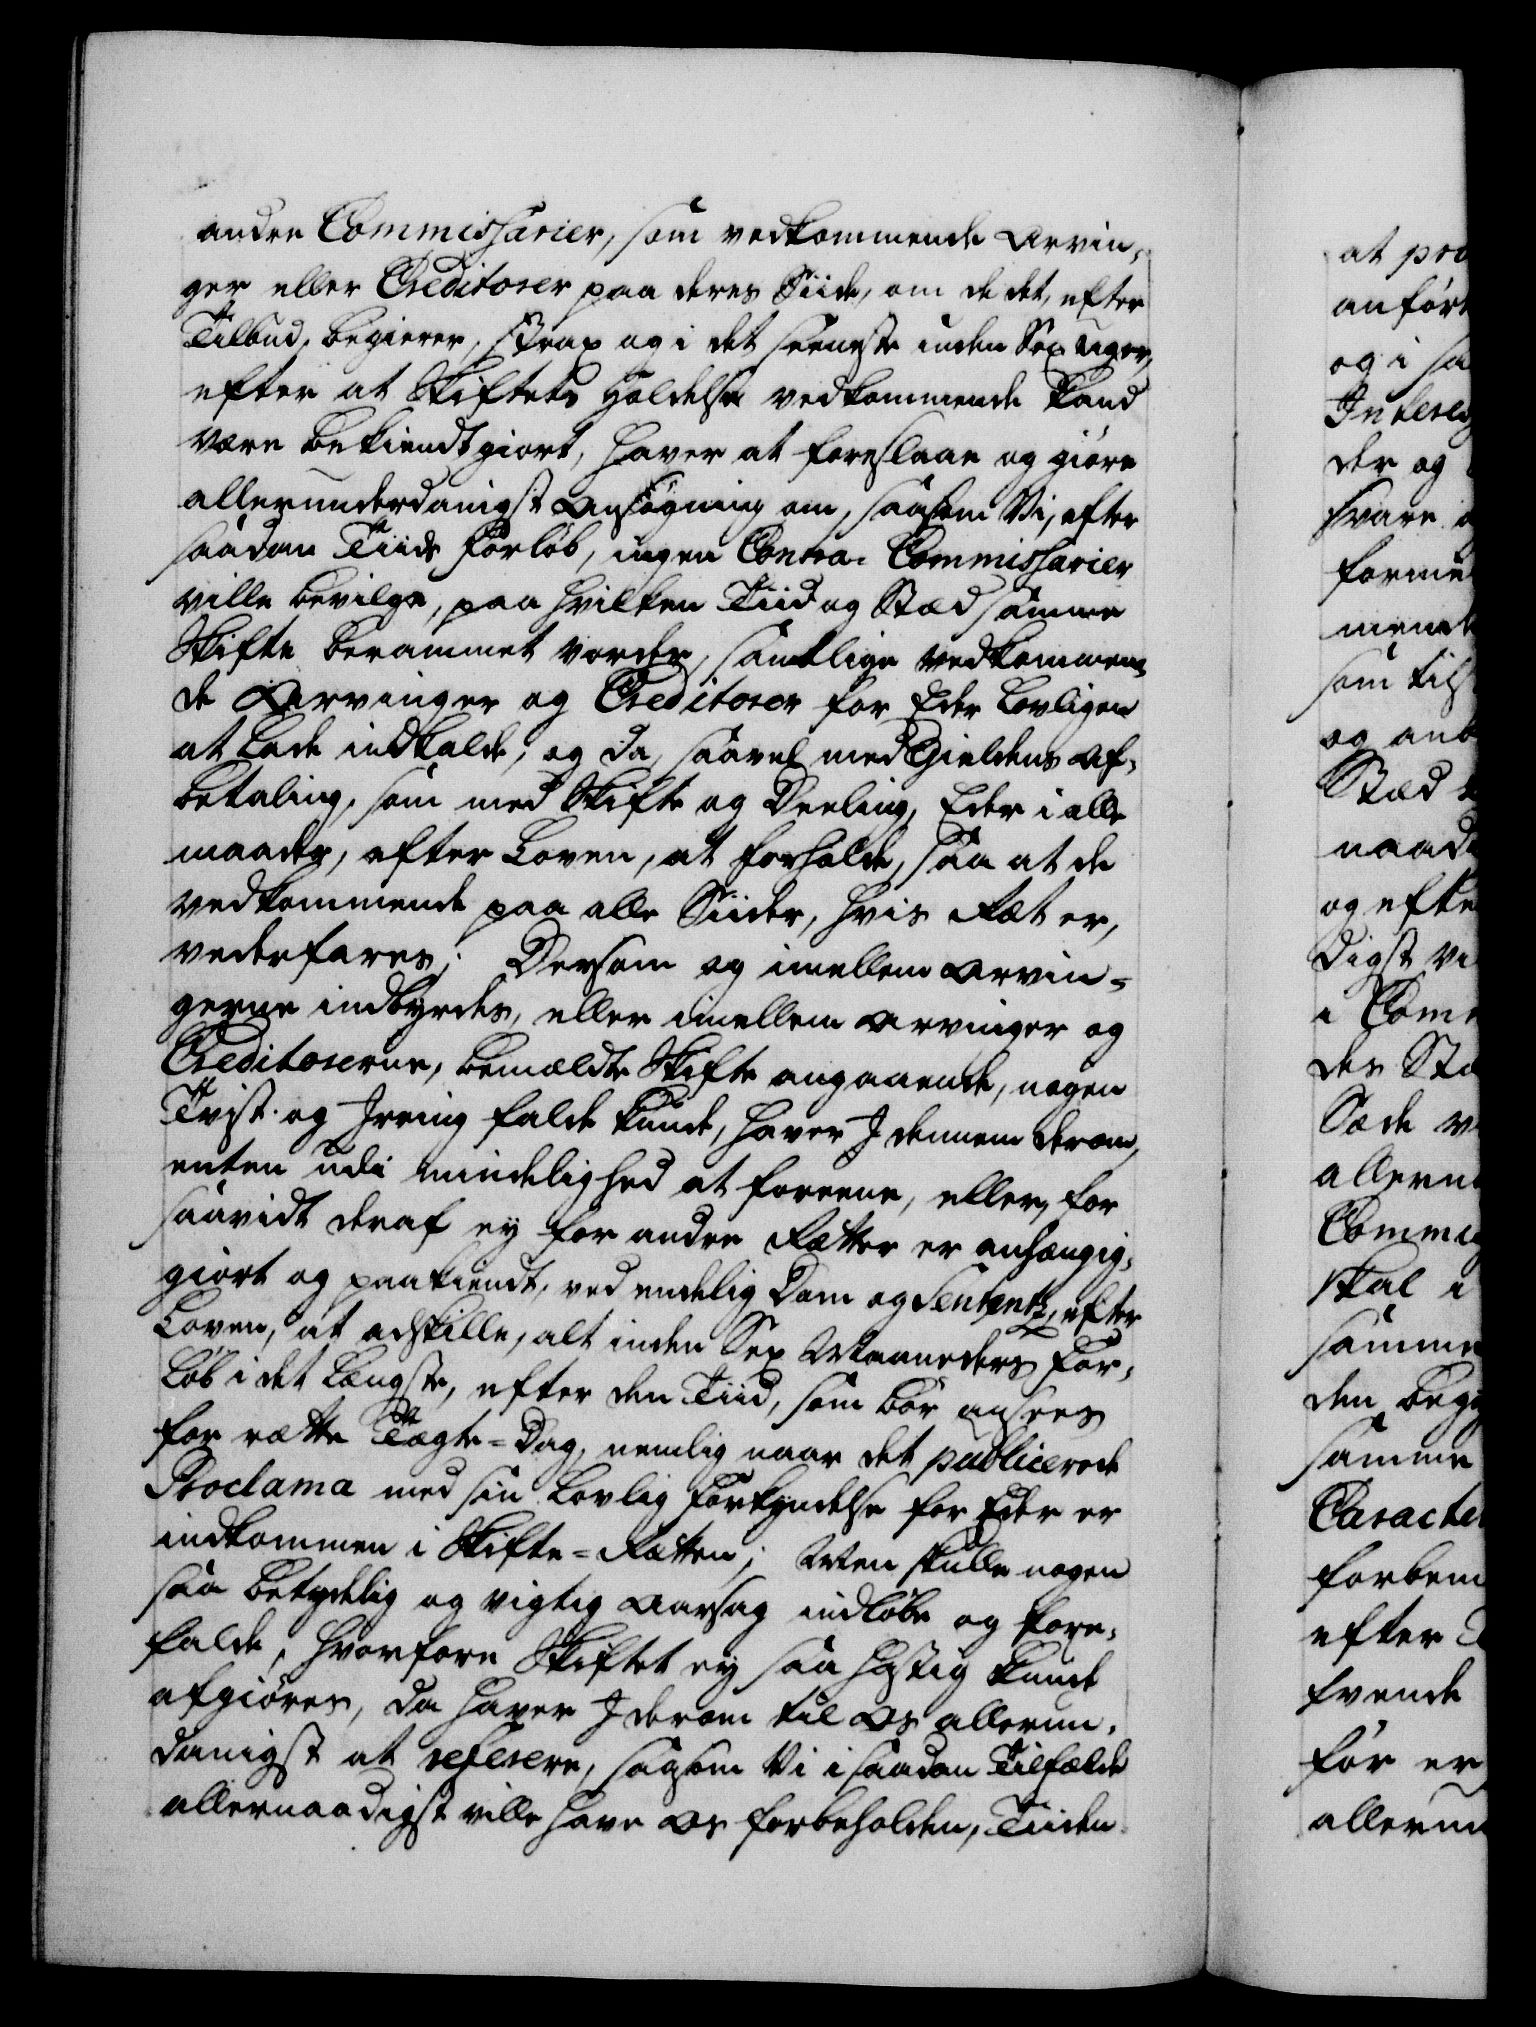 andre Commissarier, som vedkommende Arvin-
ger eller Creditorer paa deres Siide, om de det, efter
Tilbud, begierer, strax og i det seeneste inden Sex Uger,
efter at Skiftets Holdelse vedkommende kand
være bekiendtgiort, haver at foreslaae og giøre
allerunderdanigst Ansøgning om, saasom Vi, efter
saadan Tiids Forløb, ingen Contra-Commissarier
ville bevilge, paa hvilken Tiid og Stæd samme
Skifte berammet vorder, samtlige vedkommen-
de Arvinger og Creditorer for Eder Lovligen
at lade indkalde, og da, saavel med Gieldens Af-
betaling, som med Skifte og Deeling, Eder i alle
maader, efter Loven, at forholde, saa at de
vedkommende paa alle Siider, hvis Ræt er,
vederfares; Dersom og imellem Arvin-
gerne indbyrdes, eller imellem Arvinger og
Creditorerne, bemældte Skifte angaaende, nogen
Tvist og Irring falde kunde, haver I dennem derom,
enten udi mindelighed at foreene, eller, for
saavidt deraf ey for andre Rætter er anhængig-
giort og paakiendt, ved endelig Dom og Sententz, efter
Loven, at adskille, alt inden Sex Maaneders For-
løb i det længste, efter den Tiid, som bør ansees
for rætte Tægte-Dag, nemlig naar det publicerede
Proclama med sin lovlig Forkyndelse for Eder er
indkommen i Skifte-Rætten; Men skulle nogen
saa betydelig og vigtig Aarsag indløbe og fore-
falde, hvorfore Skiftet ey saa hastig kunde
afgiøres, da haver I derom til Os allerun-
danigst at referere, saasom Vi i saadan Tilfælde
allernaadigst ville have Os forbeholden, Tiiden
at pro
anført
og i sa
Interes
der og
svare
forme
mende
som tils
og anb
Stæd
naad
og efte
digst vi
i Com
des Stæ
Sæde
allern
Commis
skal i
samme
den beg
samme
Caracte
forbem
efter
hvende
før er
allerun